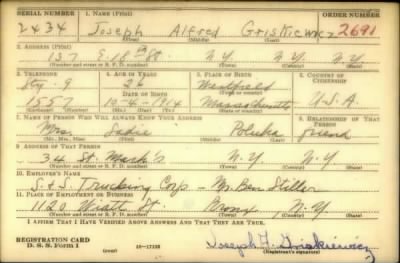 SERIAL NUMBER 1. NAME (Print) ORDER NUMBER
2434 Joseph Alfred Griskiewicz 2691
(First) (Middle) (Last)
2. ADDRESS (Print)
137 E. 18th St. N.Y. N.Y. N.Y.
(Number and street or R. F. D. number) (Town) (County) (State)
3. TELEPHONE 4. AGE IN YEARS 5. PLACE OF BIRTH 6. COUNTRY OF CITIZENSHIP
Sty. 9 26 Westfield
DATE OF BIRTH
155 10-4-1914 Massachusetts U.S.A.
(Exchange) (Number) (Mo.) (Day) (Yr.) (Town) (State or country)
7. NAME OF PERSON WHO WILL ALWAYS KNOW YOUR ADDRESS 8. RELATIONSHIP OF THAT PERSON
Mrs. Sadie friend
(Mr., Mrs., Miss) (First) (Middle) (Last)
9. ADDRESS OF THAT PERSON
34 St. Mark's N.Y. N.Y.
(Number and street or R. F. D. number) (Town) (County) (State)
10. EMPLOYER'S NAME
S.&S. Trucking Corp. – Mr. Ben Stiller
11. PLACE OF EMPLOYMENT OR BUSINESS
1120 Wyatt St. Bronx, N.Y.
(Number and street or R. F. D. number) (Town) (County) (State)
I AFFIRM THAT I HAVE VERIFIED ABOVE ANSWERS AND THAT THEY ARE TRUE.
REGISTRATION CARD
D. S. S. FORM 1 (over) 16—17105 Joseph A. Griskiewicz
(Registrant's signature)